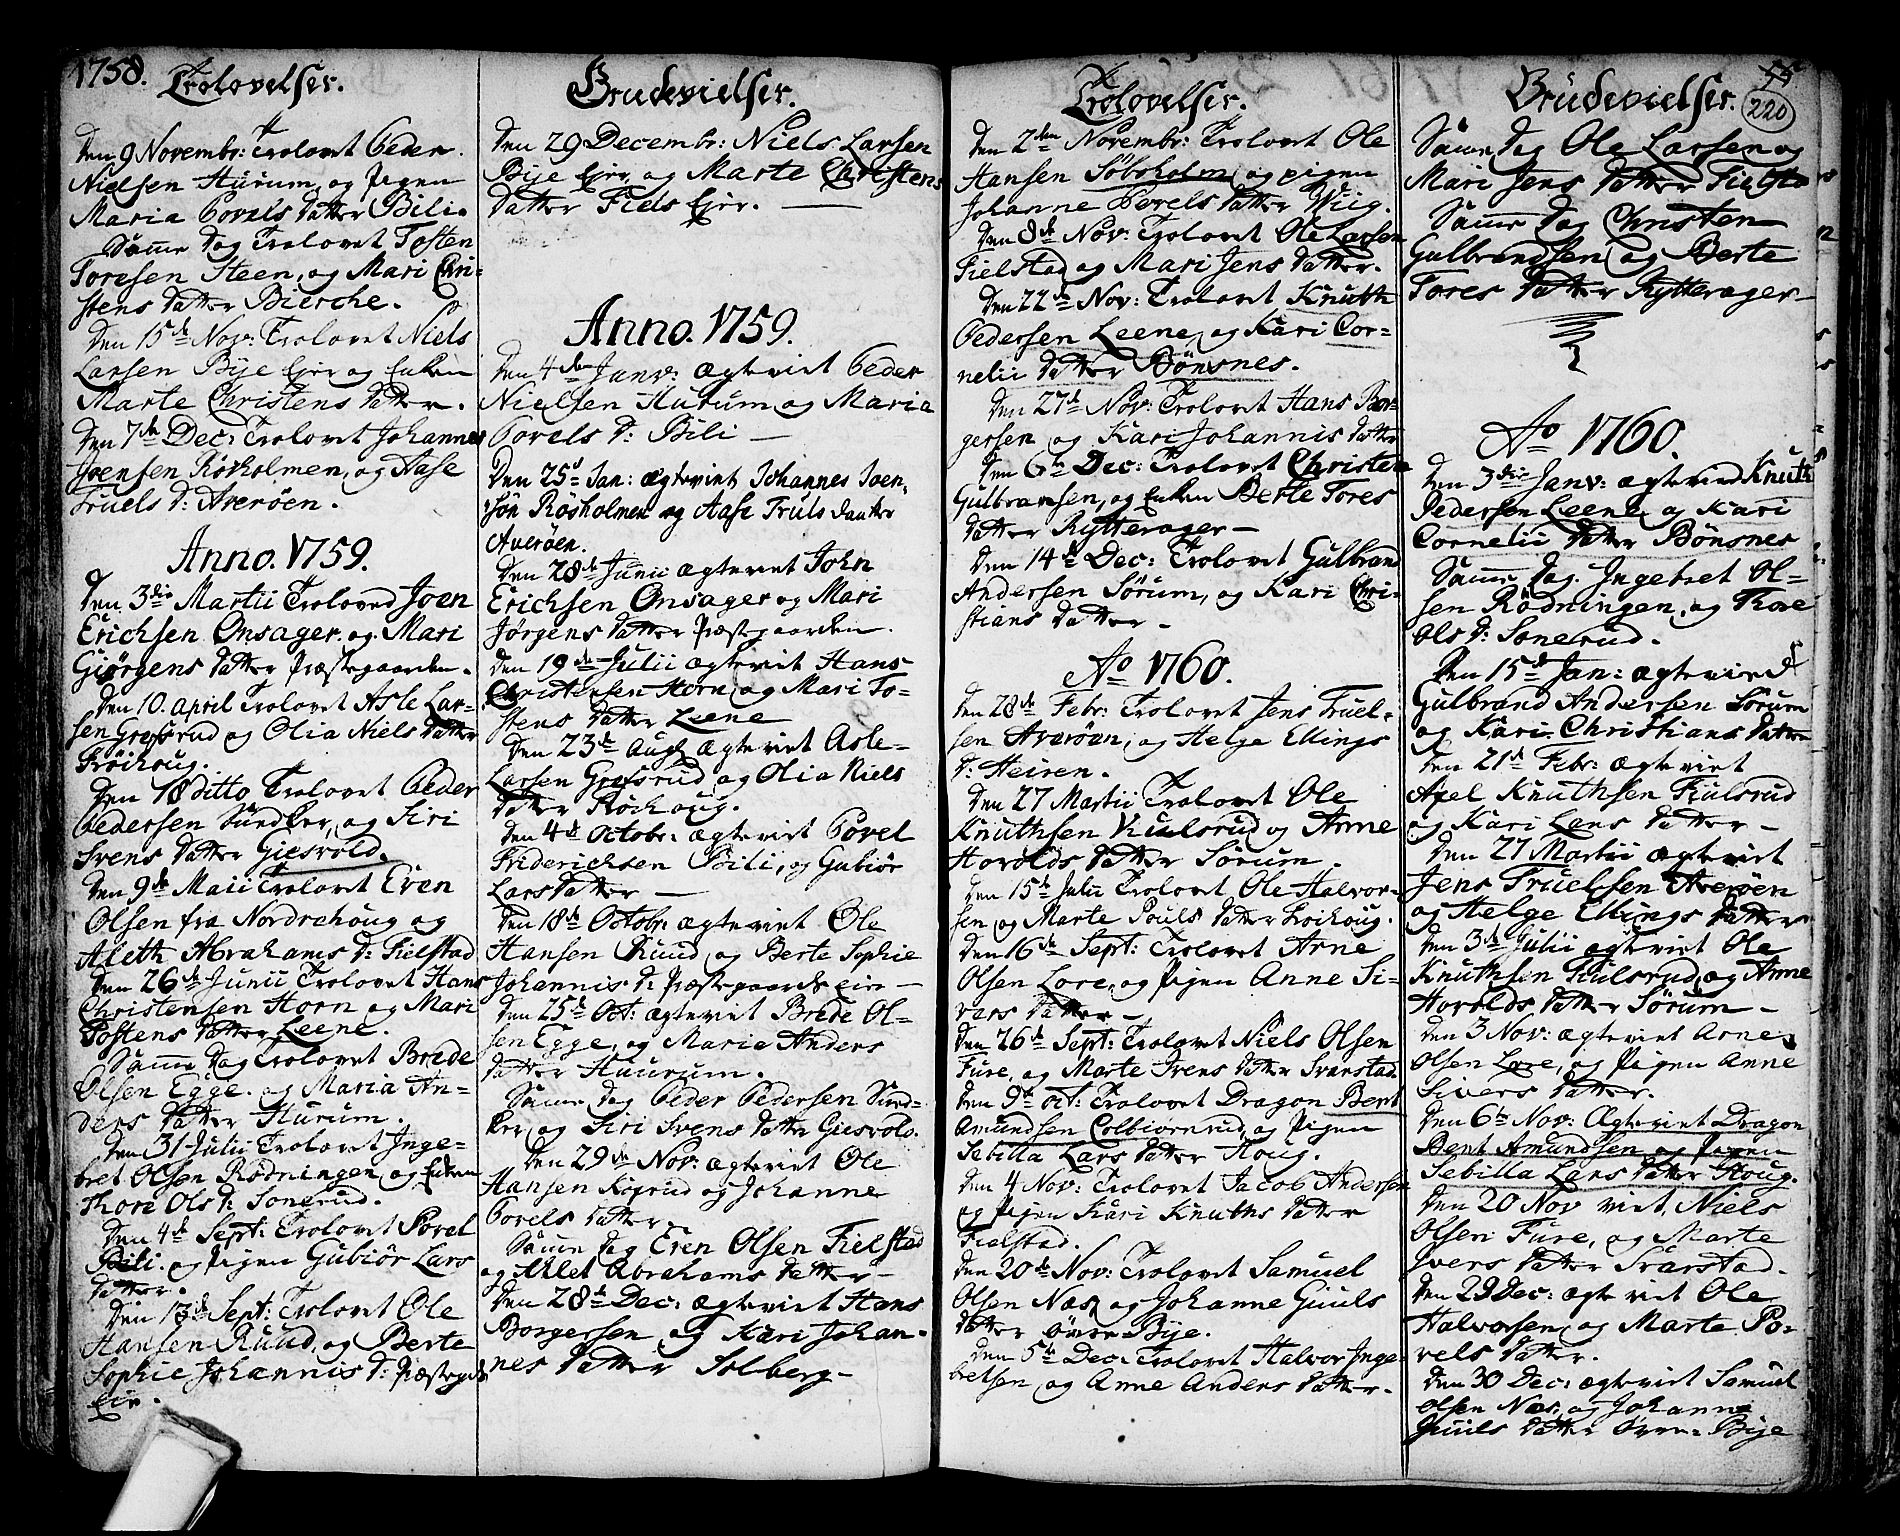 1758.
Trolovelser.
Den 9 Novembr: Trolovet Peder
Nielsen Hurum, og Pigen
Maria Povels Datter Bili.
Samme Dag Trolovet Tosten
Toresen Steen, og Mari Chri-
stens Datter Bierche.
Den 15de Nov: Trolovet Niels
Larsen Bÿe Ejer og Enken
Marte Christens Datter.
Den 7de Dec: Trolovet Johannes
Joensen Røsholmen, og Aase
Truels D: Averøen.
Anno. 1759.
Den 3die Martii Troloved Joen
Erichsen Onsager. og Mari
Giørgens Datter Præstegaarden.
Den 10. April Trolovet Asle Lar-
sen Grøsrud og Olia Niels Datter
Frøihoug.
Den 18 ditto Trolovet Peder
Pedersen Sundker, og Siri
Svens Datter Giesvold.
Den 9de Maii Trolovet Even
Olsen fra Nordrehoug og
Aleth Abrahams D: Fielstad
Den 26de Junii Trolovet Hans
Christensen Horn og Mari
Tostens Datter Leene.
Samme Dag Trolovet Brede
Olsen Egge. og Maria An-
ders Datter Hurum.
Den 31 Julii Trolovet Inge-
bret Olsen Rødningen og Enken
Thore Ols D: Sonerud.
Den 4de Sept: Trolovet Povel
Bili. og Pigen Gubiør Lars
Datter.
Den 13de Sept: Trolovet Ole
Hansen Ruud, og Berte
Sophie Johannis D: Præstegd:
Eir.
Brudevielser.
Den 29 Decembr: Niels Larsen
Bÿe Ejer, og Marte Christens
Datter Fiels Ejer.
Anno. 1759.
Den 4de Janv: ægteviet Peder
Nielsen Hurum og Maria
Povels D: Bili
Den 25d Jan: ægteviet Johannes Joen-
søn Røsholmen og Aase Truls Daatter
Averøen.
Den 28de Junii ægteviet John
Erichsen Onsager og Mari
Jørgens Datter Præstegaarden.
Den 19de Julii ægteviet Hans
Christensen Horn og Mari To-
stens Datter Leene
Den 23de Aug: ægteviet Asle
Larsen Grøsrud, og Olia Niels
Datter Røihoug.
Den 4de Octobr: ægteviet Povel
Friderichsen Bili, og Gubiør
Lars Datter
Den 18de Octobr: ægteviet Ole
Hansen Ruud, og Berte Sophie
Johannis D: Præstegaards eir
Den 25de Oct: ægteviet Brede Ol-
sen Egge, og Marie Anders
Datter Huurum.
Samme Dag Peder Pedersen Sund-
ker, og Siri Svens Datter Giesvold.
Den 29de Nov: ægteviet Ole
Hansen og Johanne
Povels Datter.
Samme Dag Even Olsen Fielstad
og Alet Abrahams Datter
Den 28de Dec: ægteviet Hans
Borgersen og Kari Johan-
nes Datter Solberg
Trolovelser.
Den 2den Novembr: Trolovet Ole
Hansen Søbsholm, og pigen
Johanne Povels Datter Wiig.
Den 8de Nov: Trolovet Ole Larsen
Fielstad og Mari Jens Datter.
Den 22de Nov: Trolovet Knuth
Pedersen Leene, og Kari Cor-
nelii Datter Bønsnes.
Den 27de Nov: Trolovet Hans Bor-
gersen og Kari Johannis Datter
Den 6te Dec: Trolovet Christen
Gulbransen, og Enken Berte Tores
Datter Rytterager
Den 14de Dec: Trolovet Gulbrand
Andersen Sørum, og Kari Chri-
stians Datter
Ao 1760.
Den 28de Febr: Trolovet Jens Truel-
sen Averøen, og Helge Ellings
D: Heiren.
Den 27 Martii Trolovet Ole
Knuthsen Fiulsrud og Anne
Horolds Datter Sørum.
Den 15de Julii Trolovet Ole Halvor-
sen og Marte Pouls Datter Froihoug.
Den 16de Sept: Trolovet Arne
Olsen Lore, og Pigen Anne Si-
vars Datter
Den 26de Sept: Trolovet Niels Olsen
Fure, og Marte Ivens Datter Svarstad
Den 9de Oct: Trolovet Dragon Bent
Amundsen Colbiørnrud, og Pigen
Sebilla Lars Datter Houg.
Den 4 Nov: Trolovet Jacob Andersen
og Pigen Kari Knuths Datter
Fielstad.
Den 20de Nov: Trolovet Samuel
Olsen Næs og Johanne Guuls
Datter Øvre Bÿe.
Den 5te Dec: Trolovet Halvor Inge-
bretsen og Anne Anders Datter.
55
220
Brudevielser.
Samme Dag Ole Larsen og
Mari Jens Datter Fielstad
Samme Dag Christen
Gulbrandsen og Berte
Tores Datter Rytterager
Ao 1760.
Den 3die Janv: ægtevied Knuth
Pedersen Leene, og Kari
Cornelii Datter Bønsnes
Samme Dag. Ingebret Ol-
sen Rødningen, og Thore
Ols D: Sonerud.
Den 15de Jan: ægtevied
Gulbrand Andersen Sørum
og Kari Christians Datter
Den 21de Febr: ægteviet
Axel Knuthsen Fiulsrud
og Kari Lars Datter
Den 27 Martii ægteviet
Jens Truelsen Averøen
og Helge Ellings Datter
Den 3de Julii ægteviet Ole
Knuthsen Fiulsrud, og Anne
Horolds Datter Sørum
Den 3 Nov: ægteviet Arne
Olsen Lore, og Pigen Anne
Sivers Datter.
Den 6te Nov: ægteviet Dragon
Bent Amundsen og Pigen
Sebilla Lars Datter Houg.
Den 20 Nov viet, Niels
Olsen Fure, og Marte
Ivers Datter Svarstad.
Den 29 Dec: ægteviet Ole
Halvorsen, og Marte Po-
vels Datter.
Den 30 Dec: ægteviet Samuel
Olsen Næs, og Johanne
Guuls Datter Øvre Bÿe